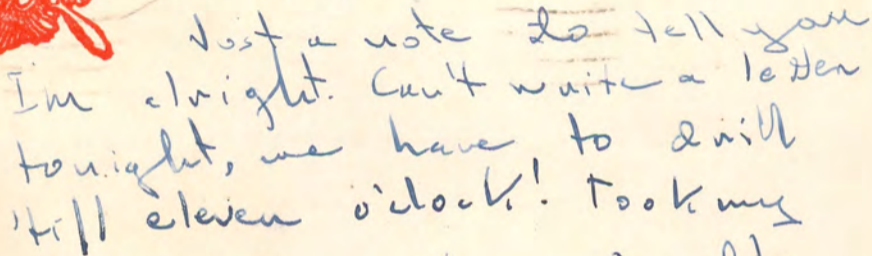 Just a note to tell you
I'm alright. Can't write a letter
tonight, we have to drill
'till eleven o'clock! Took my